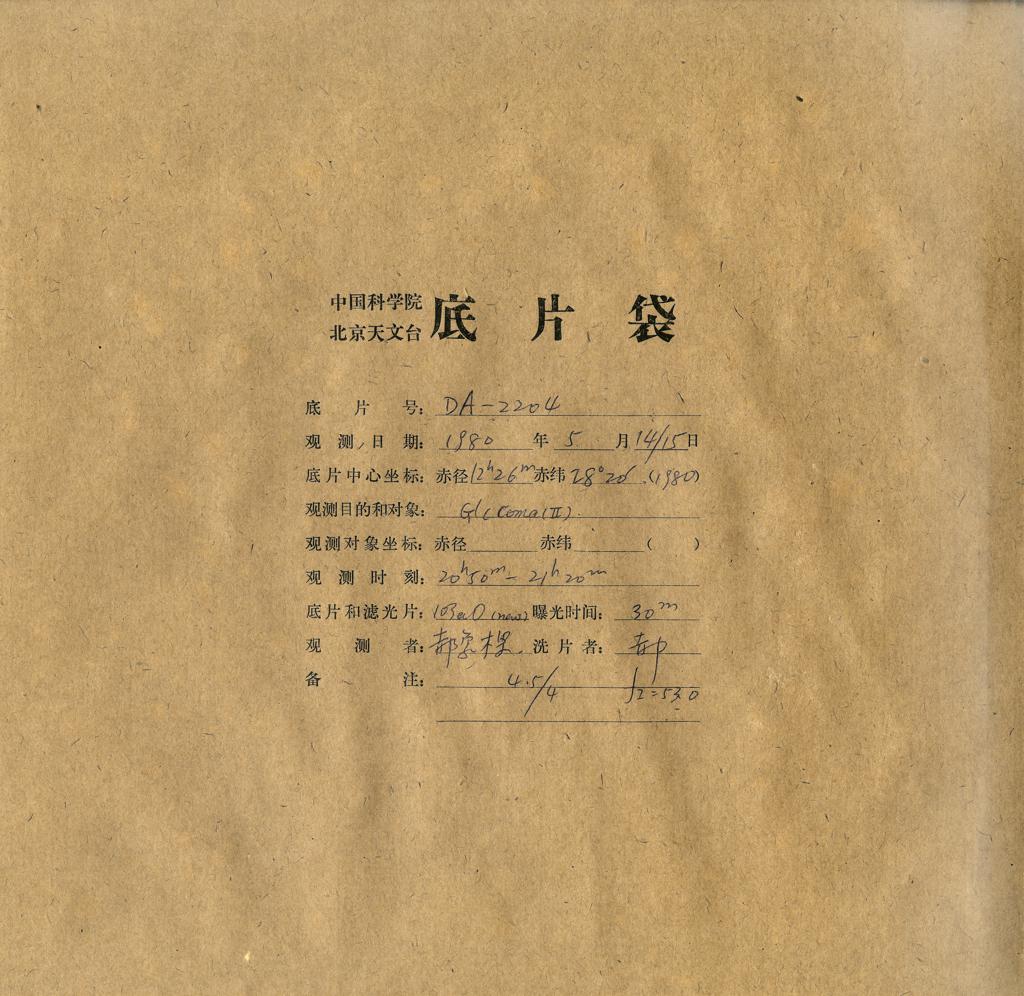 中国科学院
北京天文台 底片袋
底片号: DA-2204
观测日期: 1980年5月14/15日
底片中心坐标: 赤径12h26m赤纬28°26′(1980)
观测目的和对象: Glc Coma(II).
观测对象坐标: 赤径 赤纬 ( )
观测时刻: 20h50m-21h20m
底片和滤光片: 103aO (new) 曝光时间: 30m
观测者: 郝 洗片者: 郝
备注: 4.5/4 =53.0